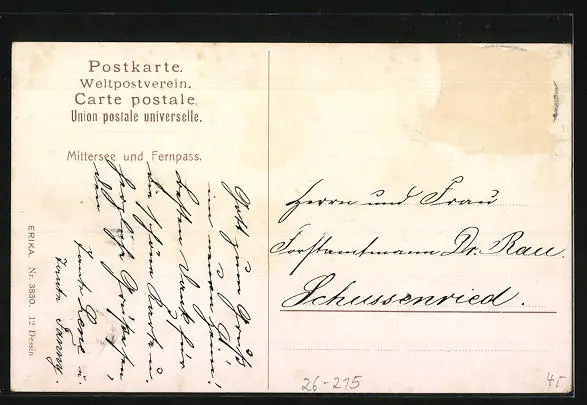 Postkarte.
Weltpostverein.
Carte postale.
Union postale universelle.
Mittersee und Fernpass.
ERIKA. Nr. 3830. 12 Dessin.
Gott zum Gruß
in
besten Dank für
die schöne Karte u.
herzliche Grüße von
den
Tante Lene u.
Tante Fanny.
Herrn und Frau
Forstamtmann Dr. Rau
Schussenried.
26-215